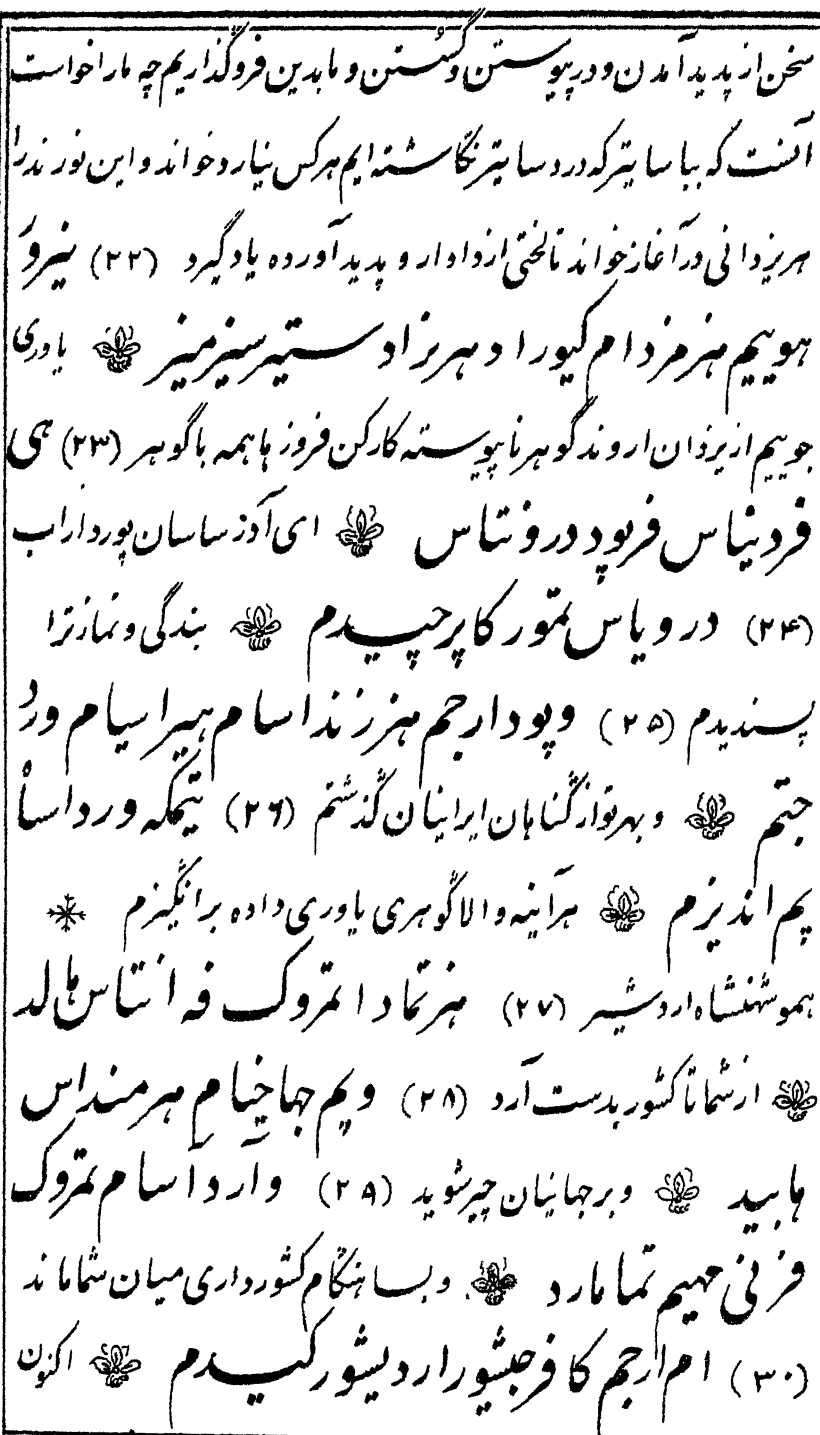 سخن از پدید آمدن و در پیوستن و گسستن و ما بدین فروگذاریم چه ما را خواست
آنست که بباسا یتر که در دساتیر نگاشته ایم هر کس نیارد خواند و این نور ند را
هر یزدانی در آغاز خواند تا لختی از دادار و پدید آورده یاد گیرد (۲۲) نیرو
هوییم هنر مزدام کیورا د هر نزاد ستیر سیز منیز یاوری
جوییم از یزدان اروند گوهر نا پیوسته کارکن فروزها همه با گوهر (۲۳) هی
فردیناس فرپود درونتاس ای آذر ساسان پور داراب
(۲۴) درویاس تمور کا پرچیدم بندگی و نماز ترا
پسندیدم (۲۵) و پودار جم هنر زنداسام هیراسیام ورد
جتم و بهر تو از گناهان ایرانیان گذشتم (۲۶) تیمکه ورداسا
پم اندیزم هر آینه والا گوهری یاوری داده برانگیزم
همو شهنشاه اردشیر (۲۷) هنر تمادا تمروک فه انتاس هالد
از شما تا کشور بدست آرد (۲۸) و پم جهاخیام هرمنداس
هابید و بر جهانیان چیر شوید (۲۹) و آرد آسام تمروک
فرنی مهیم تما مارد و بسا هنگام کشور داری میان شما ماند
(۳۰) ام ارجم کا فرجیشور اردیشور کیدم اکنون